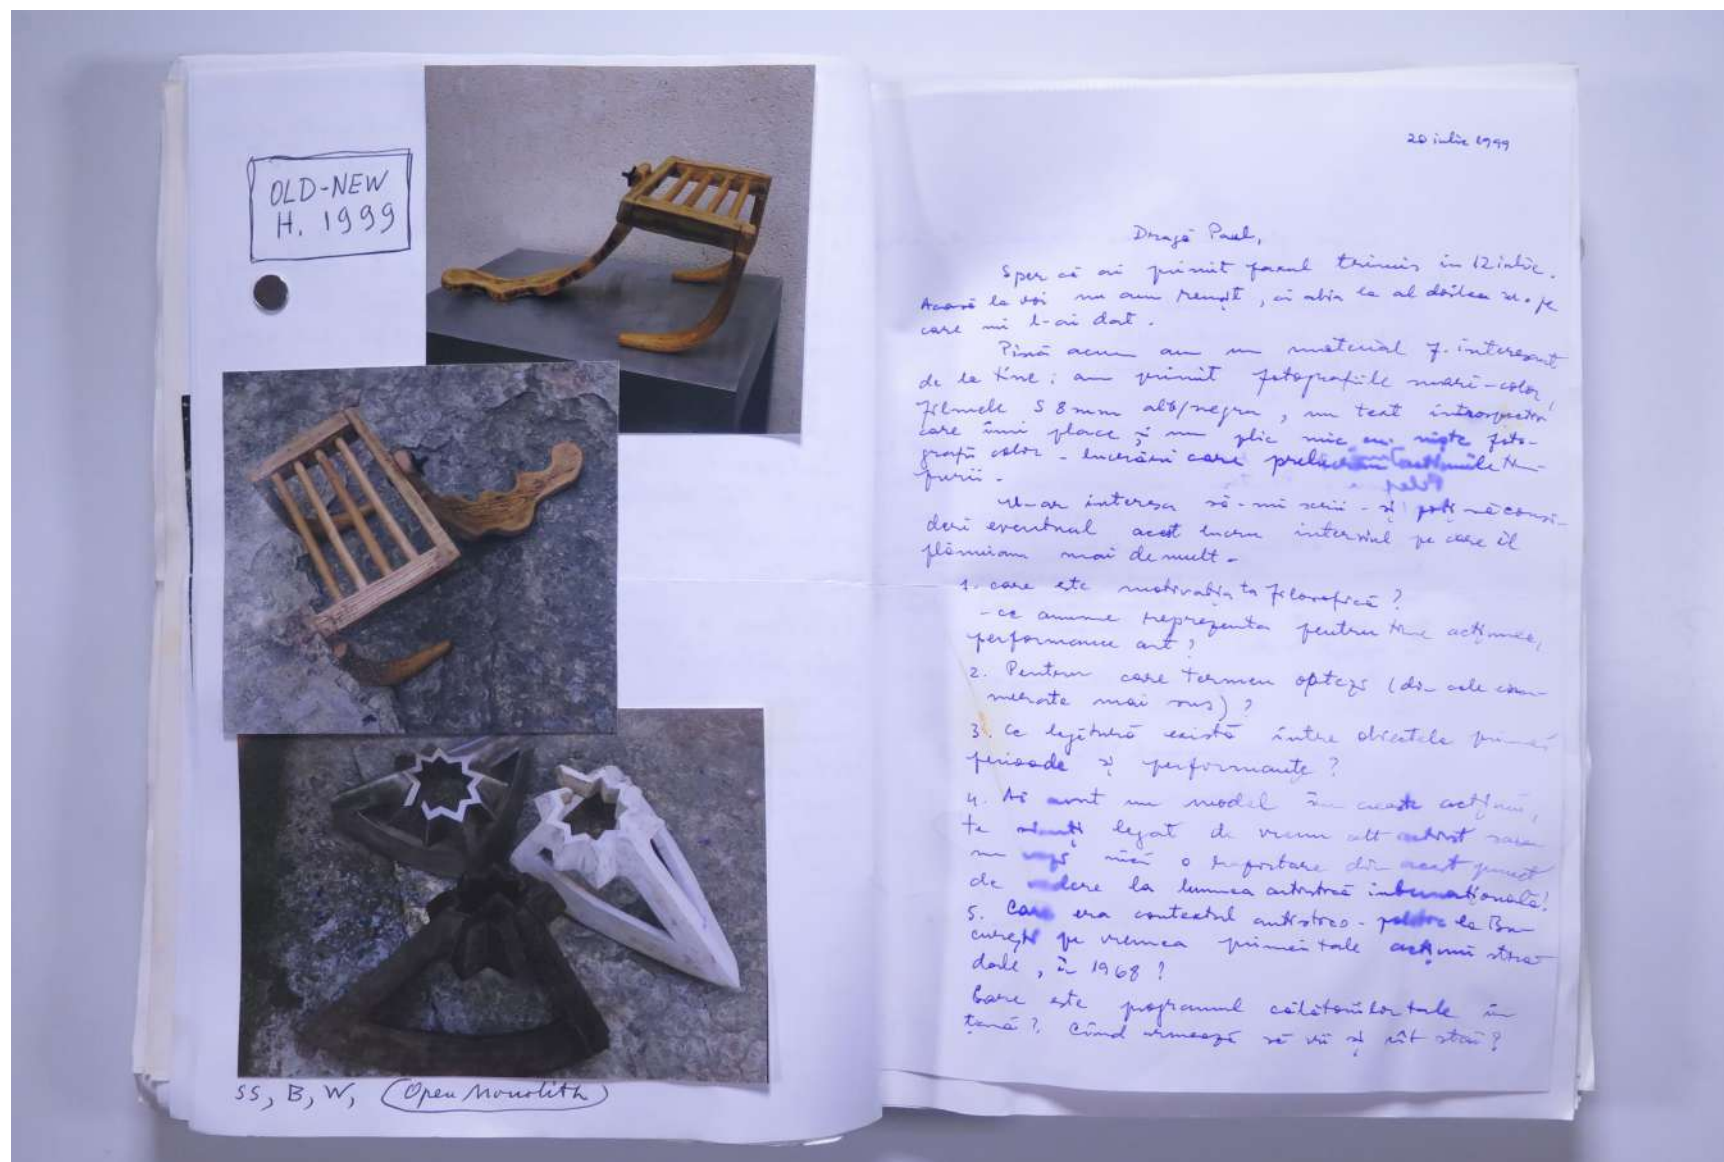 OLD-NEW
H. 1999
SS, B, W, Open Monolith
20 iulie 1999
Dragă Paul,
Sper că ai primit faxul trimis în 12 iulie.
Acasă la voi nu am reușit, ci abia la al doilea nr. pe
care mi l-ai dat.
Pînă acum am un material f. interesant
de la tine: am primit fotografiile mari-color,
filmele S 8mm alb/negru, un text
care îmi place și un plic mic cu niște foto-
grafii color - lucrări care
M-ar interesa să-mi scrii - și poți să consi-
deri eventual acest lucru interviul pe care îl
plănuiam mai demult -
1. care este motivația ta filosofică?
- ce anume reprezenta pentru tine acțiunea,
performance art?
2. Pentru care termen optezi (din cele enu-
merate mai sus)?
3. Ce legătură există între obiectele primei
perioade și performanțe?
4. Ai avut un model în aceste acțiuni,
te simți legat de vreun alt artist sau
nu vezi nici o raportare din acest punct
de vedere la lumea artistică internațională?
5. Care era contextul artistico-politic la Bu-
curești pe vremea primei tale acțiuni stra-
dale, în 1968?
Care este programul călătoriilor tale în
țară? Cînd urmează să vii și cît stai?